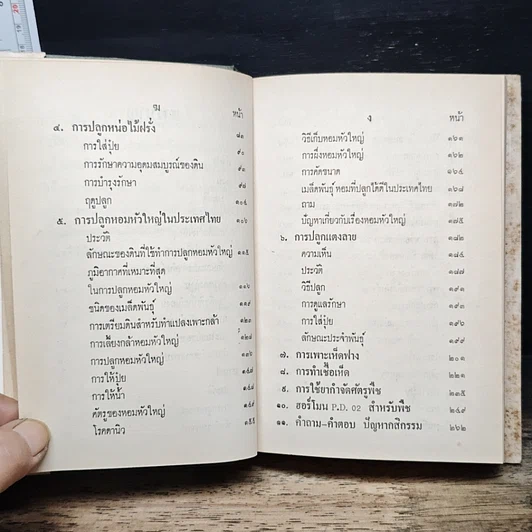 ฆ
หน้า
๔. การปลูกหน่อไม้ฝรั่ง ๘๓
การใส่ปุ๋ย ๙๐
การรักษาความอุดมสมบูรณ์ของดิน ๙๔
การบำรุงรักษา ๙๘
ฤดูปลูก ๑๐๔
๕. การปลูกหอมหัวใหญ่ในประเทศไทย ๑๐๖
ประวัติ
ลักษณะของดินที่ใช้ทำการปลูกหอมหัวใหญ่ ๑๑๕
ภูมิอากาศที่เหมาะที่สุด
ในการปลูกหอมหัวใหญ่
ชนิดของเมล็ดพันธุ์ ๑๑๙
การเตรียมดินสำหรับทำแปลงเพาะกล้า
การเลี้ยงกล้าหอมหัวใหญ่ ๑๒๘
การปลูกหอมหัวใหญ่ ๑๓๖
การให้ปุ๋ย ๑๔๗
การให้น้ำ
ศัตรูของหอมหัวใหญ่
โรคดานิว ๑๕๕
ง
หน้า
วิธีเก็บหอมหัวใหญ่ ๑๖๑
การผึ่งหอมหัวใหญ่ ๑๖๒
การคัดขนาด
เมล็ดพันธุ์ หอมที่ปลูกได้ดีในประเทศไทย ๑๖๘
ถาม
ปัญหาเกี่ยวกับเรื่องหอมหัวใหญ่ ๑๗๕
๖. การปลูกแตงลาย ๑๘๒
ความเห็น ๑๘๔
ประวัติ ๑๘๗
วิธีปลูก
การดูแลรักษา ๑๙๓
การใส่ปุ๋ย ๑๙๖
ลักษณะประจำพันธุ์ ๑๙๙
๗. การเพาะเห็ดฟาง ๒๐๑
๘. การทำเชื้อเห็ด
๙. การใช้ยากำจัดศัตรูพืช ๒๓๕
๑๐. ฮอร์โมน P.D. 02 สำหรับพืช ๒๔๙
๑๑. คำถาม-คำตอบ ปัญหากสิกรรม ๒๖๒